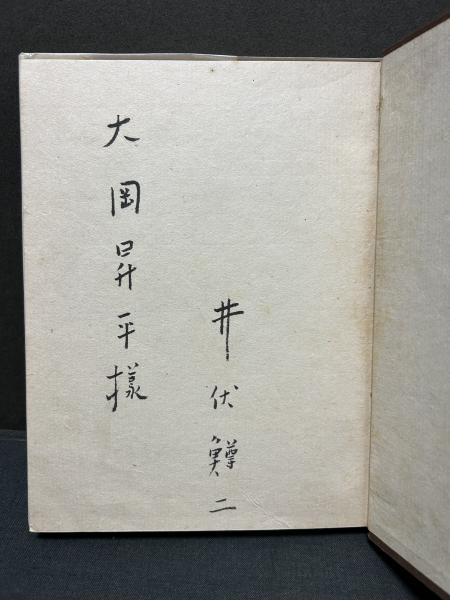 井伏鱒二
大岡昇平様